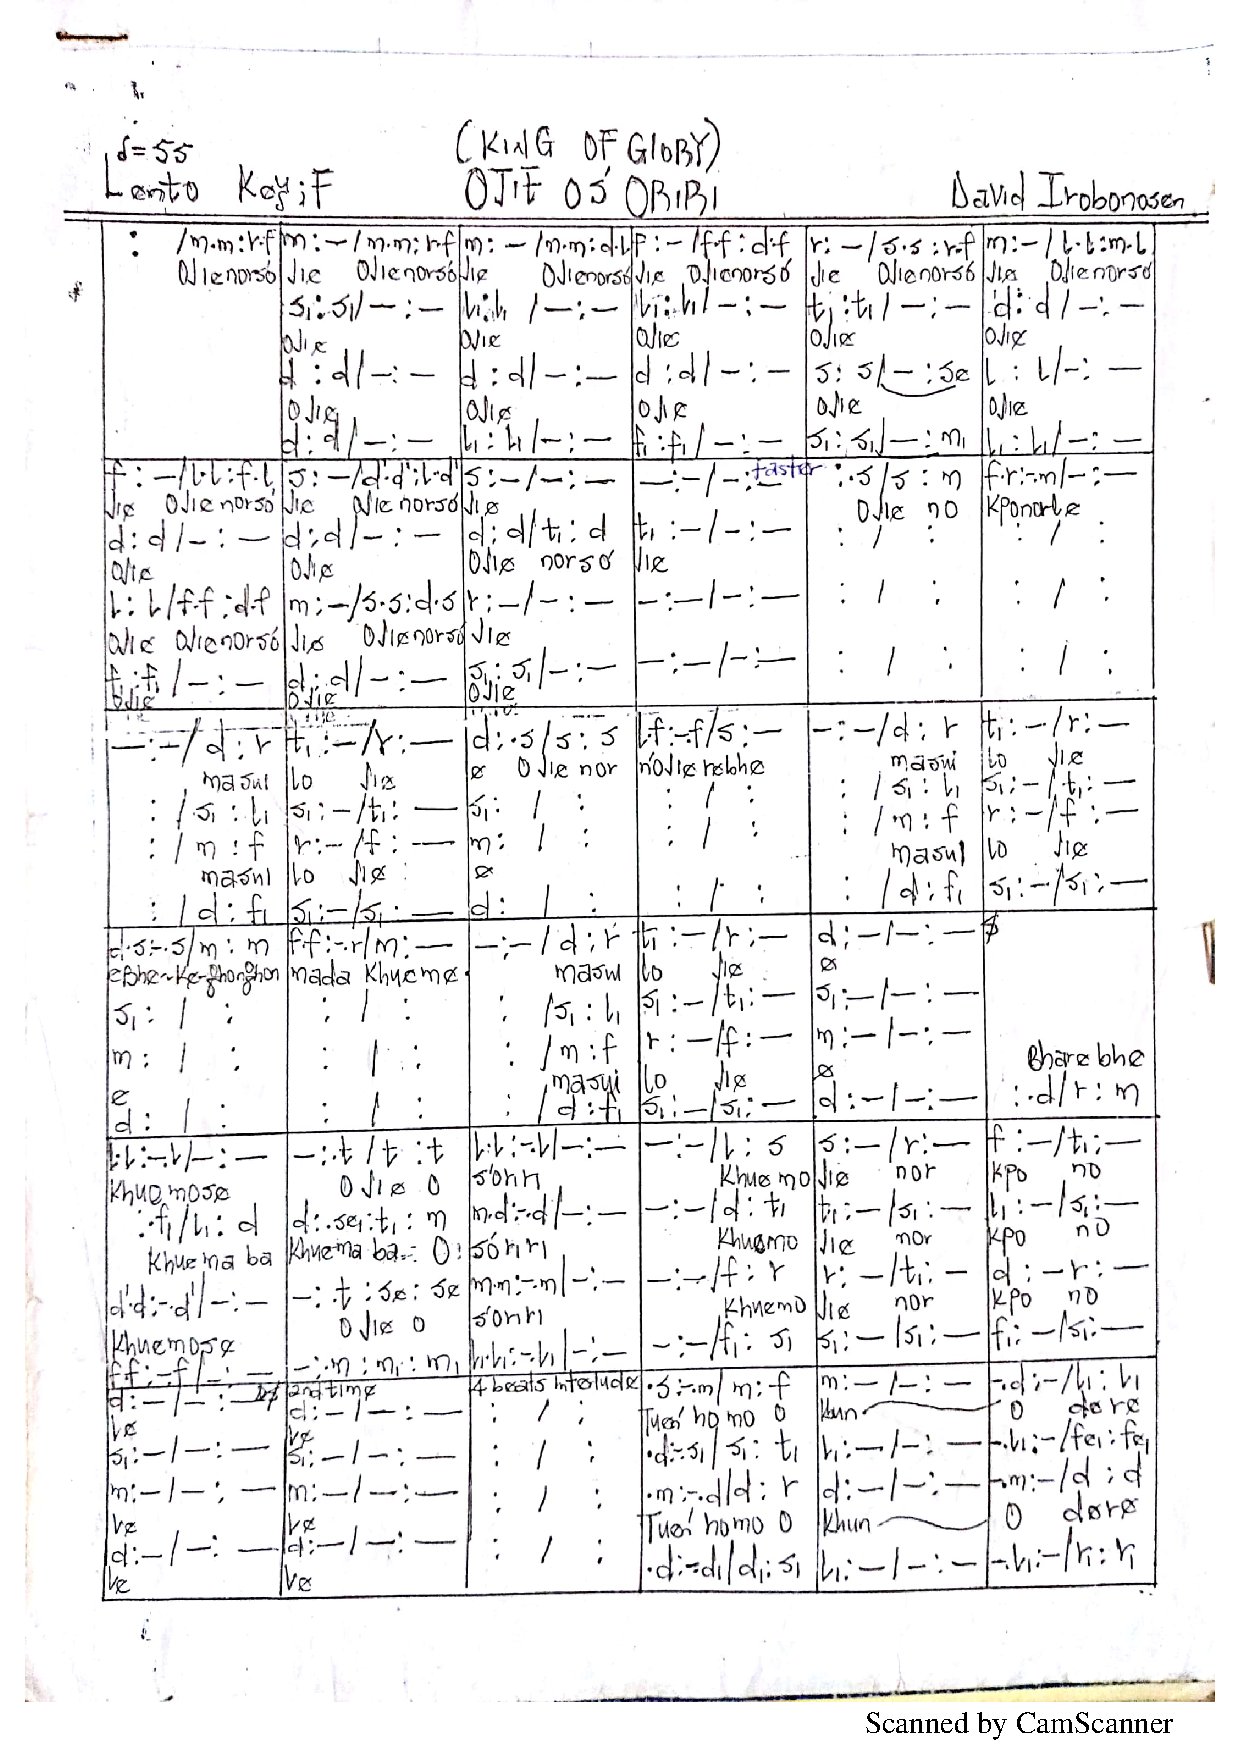 (KING OF GLORY)
d=55
Lento Key;F OJIE OS' ORIRI David Irobonosen
: /m.m:r.f m:—/m.m:r.f m:—/m.m:d.l f:—/f.f:d.f r:—/s.s:r.f m:—/l.l:m.l
OJienorsó Jie OJienorsó Jie OJienorsó Jie OJienorsó Jie OJienorsó Jie OJienorsó
s₁:s₁/—:— l₁:l₁/—:— l₁:l₁/—:— t₁:t₁/—:— d:d/—:—
OJie OJie OJie OJie OJie
d:d/—:— d:d/—:— d:d/—:— s:s/—:se l:l/—:—
OJie OJie OJie OJie OJie
d:d/—:— l₁:l₁/—:— f₁:f₁/—:— s₁:s₁/—:m₁ l₁:l₁/—:—
faster
f:—/l.l:f.l s:—/d'.d':l.d' s:—/—:— —:—/—:— :.s/s:m f.r:-.m/—:—
Jie OJienorsó Jie OJienorsó Jie OJie no Kponorle
d:d/—:— d:d/—:— d:d/t₁:d t₁:—/—:— : / : : / :
OJie OJie OJie norsó Jie
l:l/f.f:d.f m:—/s.s:d.s r:—/—:— —:—/—:— : / : : / :
OJie OJienorsó Jie OJienorsó Jie
f₁:f₁/—:— d:d/—:— s₁:s₁/—:— —:—/—:— : / : : / :
OJie OJie OJie
—:—/d:r t₁:—/r:— d:.s/s:s l.f:-.f/s:— —:—/d:r t₁:—/r:—
masul lo Jie e OJie nor n'oJie nebhe masul lo Jie
: /s₁:l₁ s₁:—/t₁:— s₁: / : : / : : /s₁:l₁ s₁:—/t₁:—
: /m:f r:—/f:— m: / : : / : : /m:f r:—/f:—
masul lo Jie e masul lo Jie
: /d:f₁ s₁:—/s₁:— d: / : : / : : /d:f₁ s₁:—/s₁:—
d.s:-.s/m:m f.f:-.r/m:— —:—/d:r t₁:—/r:— d:—/—:—
eBhe-Ke-ghonghon mada Khueme. masul lo Jie e
s₁: / : : / : : /s₁:l₁ s₁:—/t₁:— s₁:—/—:—
m: / : : / : : /m:f r:—/f:— m:—/—:— Bharebhe
e masul lo Jie e
d: / : : / : : /d:f₁ s₁:—/s₁:— d:—/—:— :.d/r:m
l.l:-.l/—:— —:.t/t:t l.l:-.l/—:— —:—/l:s s:—/r:— f:—/t₁:—
Khuomose OJie O s'oriri Khuemo Jie nor Kpo no
:.f₁/l₁:d d:.se₁:t₁:m m.d:-.d/—:— —:—/d:t₁ t₁:—/s₁:— l₁:—/s₁:—
Khuema ba Khuema ba- O! sóriri Khuemo Jie nor Kpo no
d'.d':-.d'/—:— —:.t:se:se m.m:-.m/—:— —:—/f:r r:—/t₁:— d:—r:—
Khuemose OJie O s'oriri Khuemo Jie nor Kpo no
f.f:-.f/—:— —:.m:m₁:m₁ l₁.l₁:-.l₁/—:— —:—/f₁:s₁ s₁:—/s₁:— f₁:—/s₁:—
2nd time 4 beats interlude
d:—/—:— d:—/—:— : / : .s:-.m/m:f m:—/—:— -.d:—/l₁:l₁
ve ve Tuen' homo O khun O dore
s₁:—/—:— s₁:—/—:— : / : .d:-s₁/s₁:t₁ l₁:—/—:— -.l₁:—/fe₁:fe₁
m:—/—:— m:—/—:— : / : .m:-.d/d:r d:—/—:— -.m:—/d:d
ve ve Tuen' homo O Khun O dore
d:—/—:— d:—/—:— : / : .d:-d₁/d₁:s₁ l₁:—/—:— -.l₁:—/r₁:r₁
ve ve
Scanned by CamScanner